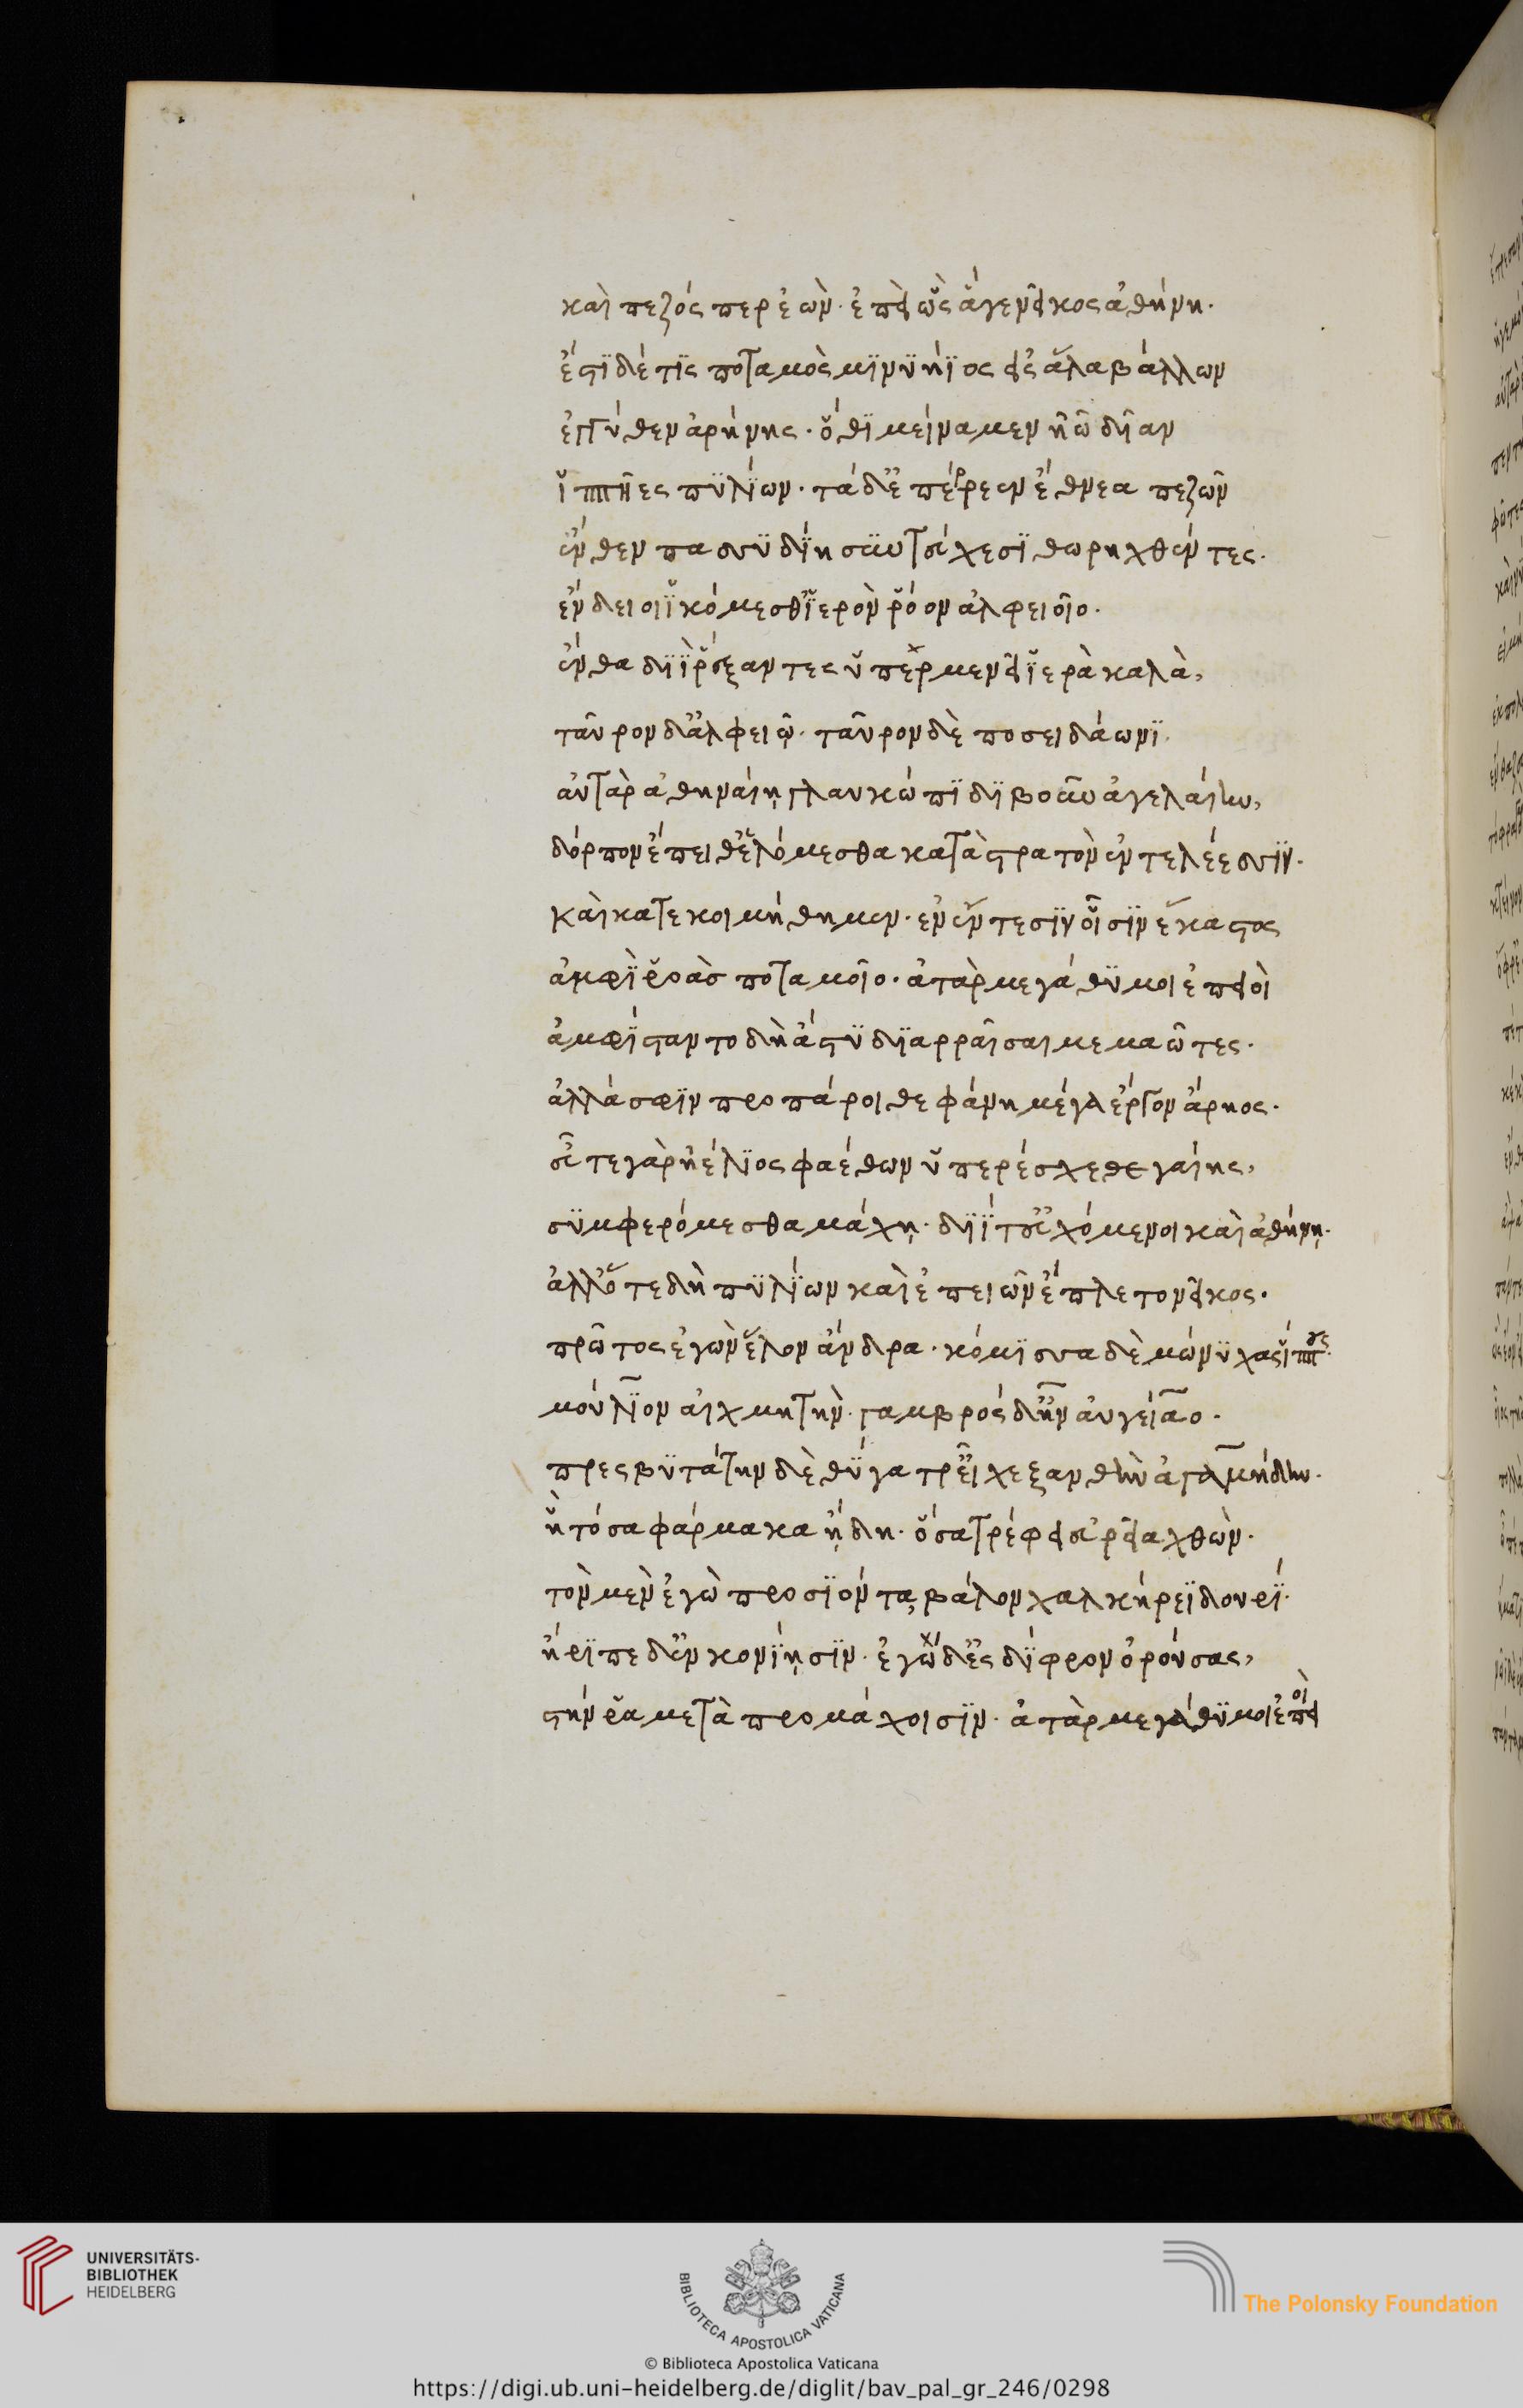 καὶ πεζός περ ἐὼν· ἐπεὶ ὣς ἄγε νεῖκος ἀθήνη·
ἔστι δέ τις ποταμὸς μινυήϊος εἰς ἅλα βάλλων
ἐγγύθεν ἀρήνης· ὅθι μείναμεν ἠῶ δῖαν
ἱππῆες πυλίων· τὰ δ' ἐπέρρεεν ἔθνεα πεζῶν
ἔνθεν πασσυδίη σὺν τεύχεσι θωρηχθέντες·
ἔνδειοι ἱκόμεσθ' ἱερὸν ῥόον ἀλφειοῖο·
ἔνθα διῒ ῥέξαντες ὑπερμενεῖ ἱερὰ καλὰ,
ταῦρον δ' ἀλφειῷ· ταῦρον δὲ ποσειδάωνι·
αὐτὰρ ἀθηναίῃ γλαυκώπιδι βοῦν ἀγελαίην,
δόρπον ἔπειθ' ἑλόμεσθα κατὰ στρατὸν ἐν τελέεσσιν·
καὶ κατεκοιμήθημεν· ἐν ἔντεσιν οἷσιν ἕκαστος
ἀμφὶ ῥοὰς ποταμοῖο· ἀτὰρ μεγάθυμοι ἐπειοὶ
ἀμφίσταντο δὴ ἄστυ διαρραῖσαι μεμαῶτες·
ἀλλά σφιν προπάροιθε φάνη μέγα ἔργον ἄρηος·
εὖτε γὰρ ἠέλιος φαέθων ὑπερέσχεθε γαίης,
συμφερόμεσθα μάχῃ· διΐ τ' εὐχόμενοι καὶ ἀθήνῃ·
ἀλλ' ὅτε δὴ πυλίων καὶ ἐπειῶν ἔπλετο νεῖκος·
πρῶτος ἐγὼν ἕλον ἄνδρα· κόμισσα δὲ μώνυχας ἵππους·
μούλιον αἰχμητὴν· γαμβρός δ' ἦν αὐγείαο·
πρεσβυτάτην δὲ θύγατρ' εἶχε ξανθὴν ἀγαμήδην·
ἣ τόσα φάρμακα ᾔδη· ὅσα τρέφει εὐρεῖα χθὼν·
τὸν μὲν ἐγὼ προσιόντα βάλον χαλκήρεϊ δουρί·
ἤριπε δ' ἐν κονίῃσιν· ἐγὼ δ' ἐς δίφρον ὀρούσας,
στῆν ῥα μετὰ προμάχοισιν· ἀτὰρ μεγάθυμοι ἐπειοὶ
UNIVERSITÄTS-
BIBLIOTHEK
HEIDELBERG
BIBLIOTECA APOSTOLICA VATICANA
The Polonsky Foundation
© Biblioteca Apostolica Vaticana
https://digi.ub.uni-heidelberg.de/diglit/bav_pal_gr_246/0298